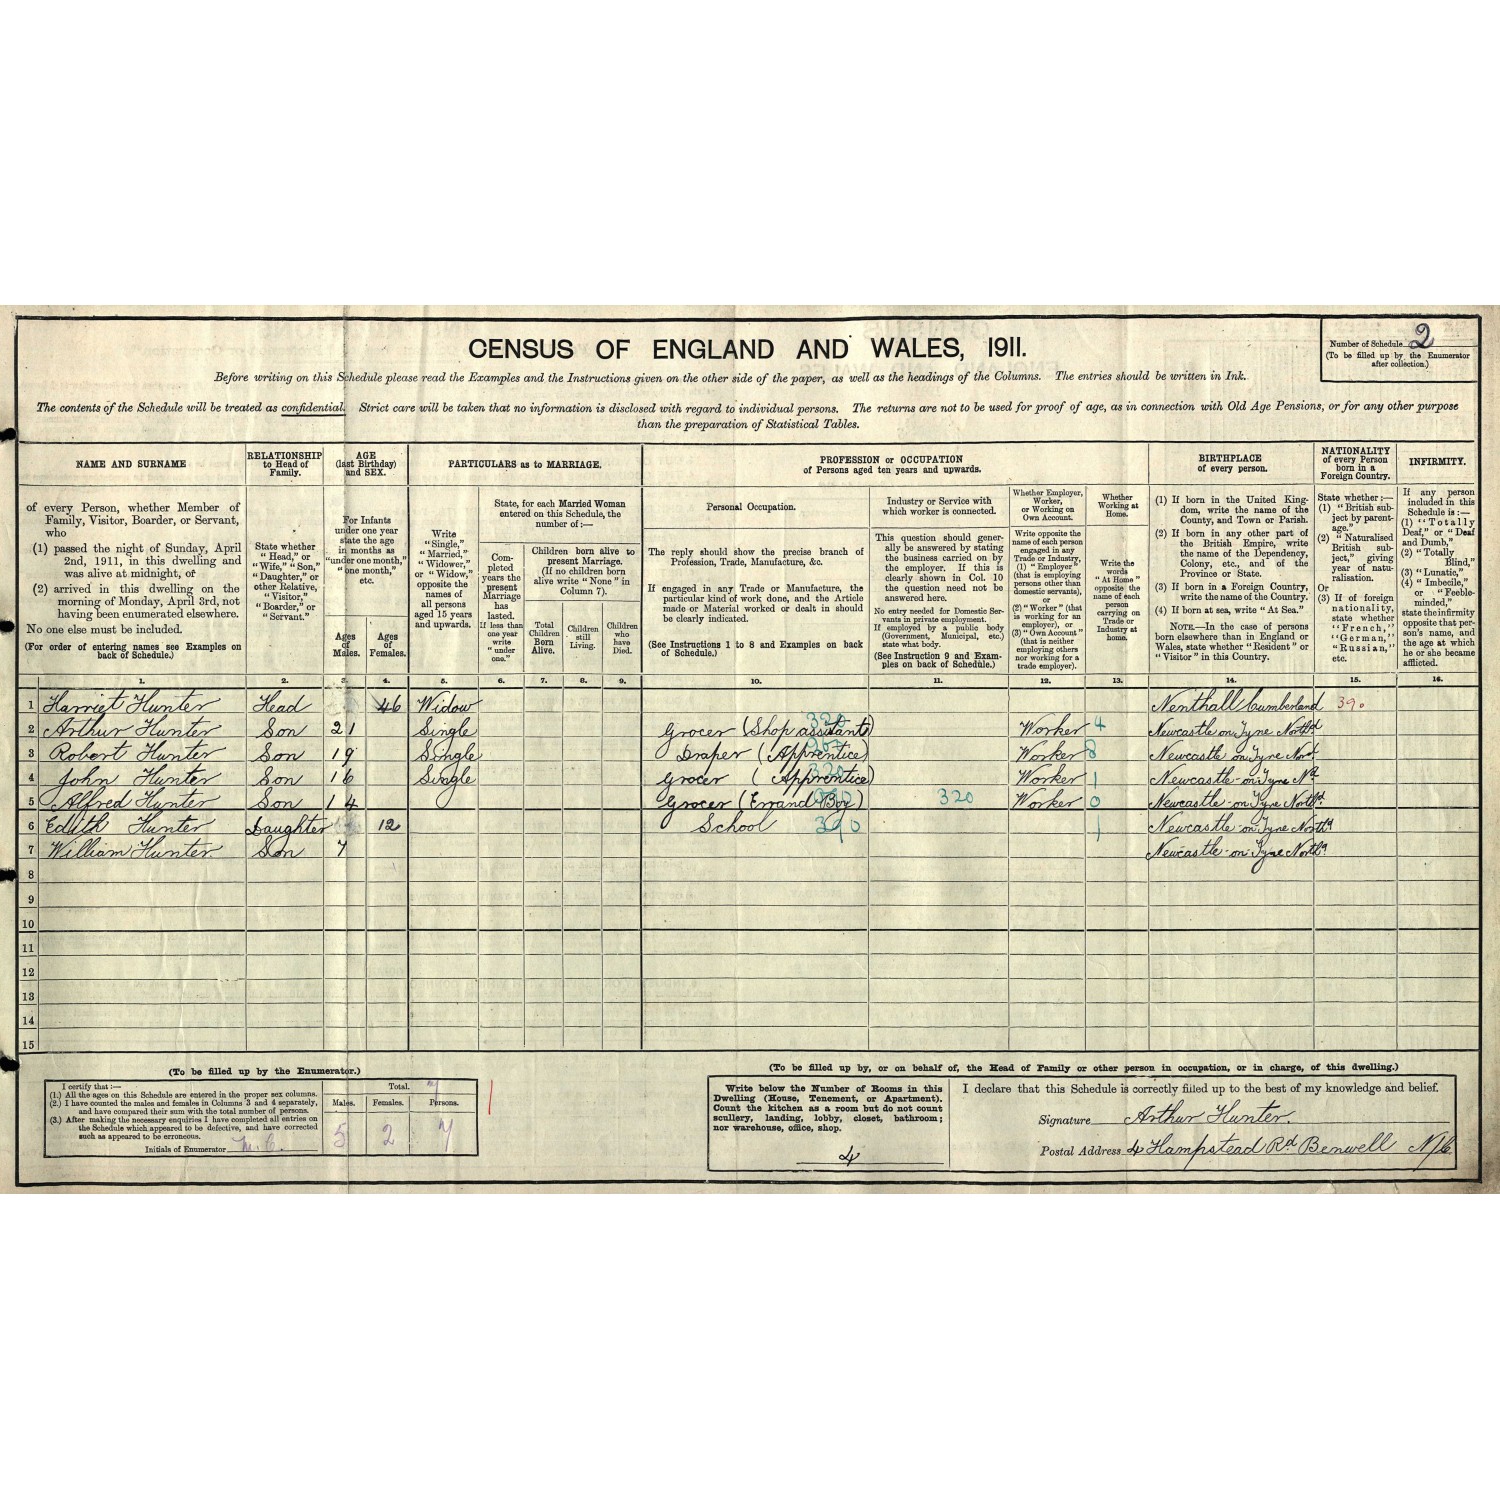 CENSUS OF ENGLAND AND WALES, 1911.
Number of Schedule 2
(To be filled up by the Enumerator
after collection.)
Before writing on this Schedule please read the Examples and the Instructions given on the other side of the paper, as well as the headings of the Columns. The entries should be written in Ink.
The contents of the Schedule will be treated as confidential. Strict care will be taken that no information is disclosed with regard to individual persons. The returns are not to be used for proof of age, as in connection with Old Age Pensions, or for any other purpose
than the preparation of Statistical Tables.
NAME AND SURNAME
of every Person, whether Member of
Family, Visitor, Boarder, or Servant,
who
(1) passed the night of Sunday, April
2nd, 1911, in this dwelling and
was alive at midnight, or
(2) arrived in this dwelling on the
morning of Monday, April 3rd, not
having been enumerated elsewhere.
No one else must be included.
(For order of entering names see Examples on
back of Schedule.)
RELATIONSHIP
to Head of
Family.
State whether
"Head," or
"Wife," "Son,"
"Daughter," or
other Relative,
"Visitor,"
"Boarder," or
"Servant."
AGE
(last Birthday)
and SEX.
For Infants
under one year
state the age
in months as
"under one month,"
"one month,"
etc.
Ages
of
Males.
Ages
of
Females.
PARTICULARS as to MARRIAGE.
Write
"Single,"
"Married,"
"Widower,"
or "Widow,"
opposite the
names of
all persons
aged 15 years
and upwards.
State, for each Married Woman
entered on this Schedule, the
number of:—
Com-
pleted
years the
present
Marriage
has
lasted.
If less than
one year
write
"under
one."
Children born alive to
present Marriage.
(If no children born
alive write "None" in
Column 7).
Total
Children
Born
Alive.
Children
still
Living.
Children
who
have
Died.
PROFESSION or OCCUPATION
of Persons aged ten years and upwards.
Personal Occupation.
The reply should show the precise branch of
Profession, Trade, Manufacture, &c.
If engaged in any Trade or Manufacture, the
particular kind of work done, and the Article
made or Material worked or dealt in should
be clearly indicated.
(See Instructions 1 to 8 and Examples on back
of Schedule.)
Industry or Service with
which worker is connected.
This question should gener-
ally be answered by stating
the business carried on by
the employer. If this is
clearly shown in Col. 10
the question need not be
answered.
No entry needed for Domestic Ser-
vants in private employment.
If employed by a public body
(Government, Municipal, etc.)
state what body.
(See Instruction 9 and Exam-
ples on back of Schedule.)
Whether Employer,
Worker,
or Working on
Own Account.
Write opposite the
name of each person
engaged in any
Trade or Industry,
(1) "Employer"
(that is employing
persons other than
domestic servants),
or
(2) "Worker" (that
is working for an
employer), or
(3) "Own Account"
(that is neither
employing others
nor working for a
trade employer).
Whether
Working at
Home.
Write the
words
"At Home"
opposite the
name of each
person
carrying on
Trade or
Industry at
home.
BIRTHPLACE
of every person.
(1) If born in the United King-
dom, write the name of the
County, and Town or Parish.
(2) If born in any other part of
the British Empire, write
the name of the Dependency,
Colony, etc., and of the
Province or State.
(3) If born in a Foreign Country,
write the name of the Country.
(4) If born at sea, write "At Sea."
NOTE.—In the case of persons
born elsewhere than in England or
Wales, state whether "Resident" or
"Visitor" in this Country.
NATIONALITY
of every Person
born in a
Foreign Country.
State whether:—
(1) "British sub-
ject by parent-
age."
(2) "Naturalised
British sub-
ject," giving
year of natu-
ralisation.
Or
(3) If of foreign
nationality,
state whether
"French,"
"German,"
"Russian,"
etc.
INFIRMITY.
If any person
included in this
Schedule is:—
(1) "Totally
Deaf," or "Deaf
and Dumb,"
(2) "Totally
Blind,"
(3) "Lunatic,"
(4) "Imbecile,"
or "Feeble-
minded,"
state the infirmity
opposite that per-
son's name, and
the age at which
he or she became
afflicted.
1. 2. 3. 4. 5. 6. 7. 8. 9. 10. 11. 12. 13. 14. 15. 16.
1 Harriet Hunter Head 46 Widow Nenthall Cumberland 390
2 Arthur Hunter Son 21 Single Grocer (Shop assistant) 320 Worker 4 Newcastle on Tyne Northd
3 Robert Hunter Son 19 Single Draper (Apprentice) Worker 8 Newcastle on Tyne Nord
4 John Hunter Son 16 Single Grocer (Apprentice) 320 Worker 1 Newcastle-on-Tyne Nd
5 Alfred Hunter Son 14 Grocer (Errand Boy) 320 Worker 0 Newcastle-on-Tyne Northd.
6 Edith Hunter Daughter 12 School 390 1 Newcastle-on-Tyne Northd
7 William Hunter. Son 7 Newcastle-on-Tyne Northd.
8
9
10
11
12
13
14
15
(To be filled up by the Enumerator.)
I certify that:—
(1.) All the ages on this Schedule are entered in the proper sex columns.
(2.) I have counted the males and females in Columns 3 and 4 separately,
and have compared their sum with the total number of persons.
(3.) After making the necessary enquiries I have completed all entries on
the Schedule which appeared to be defective, and have corrected
such as appeared to be erroneous.
Initials of Enumerator
Total. 7
Males. Females. Persons.
5 2 7
(To be filled up by, or on behalf of, the Head of Family or other person in occupation, or in charge, of this dwelling.)
Write below the Number of Rooms in this
Dwelling (House, Tenement, or Apartment).
Count the kitchen as a room but do not count
scullery, landing, lobby, closet, bathroom;
nor warehouse, office, shop.
4
I declare that this Schedule is correctly filled up to the best of my knowledge and belief.
Signature Arthur Hunter.
Postal Address 4 Hampstead Rd Benwell N/c